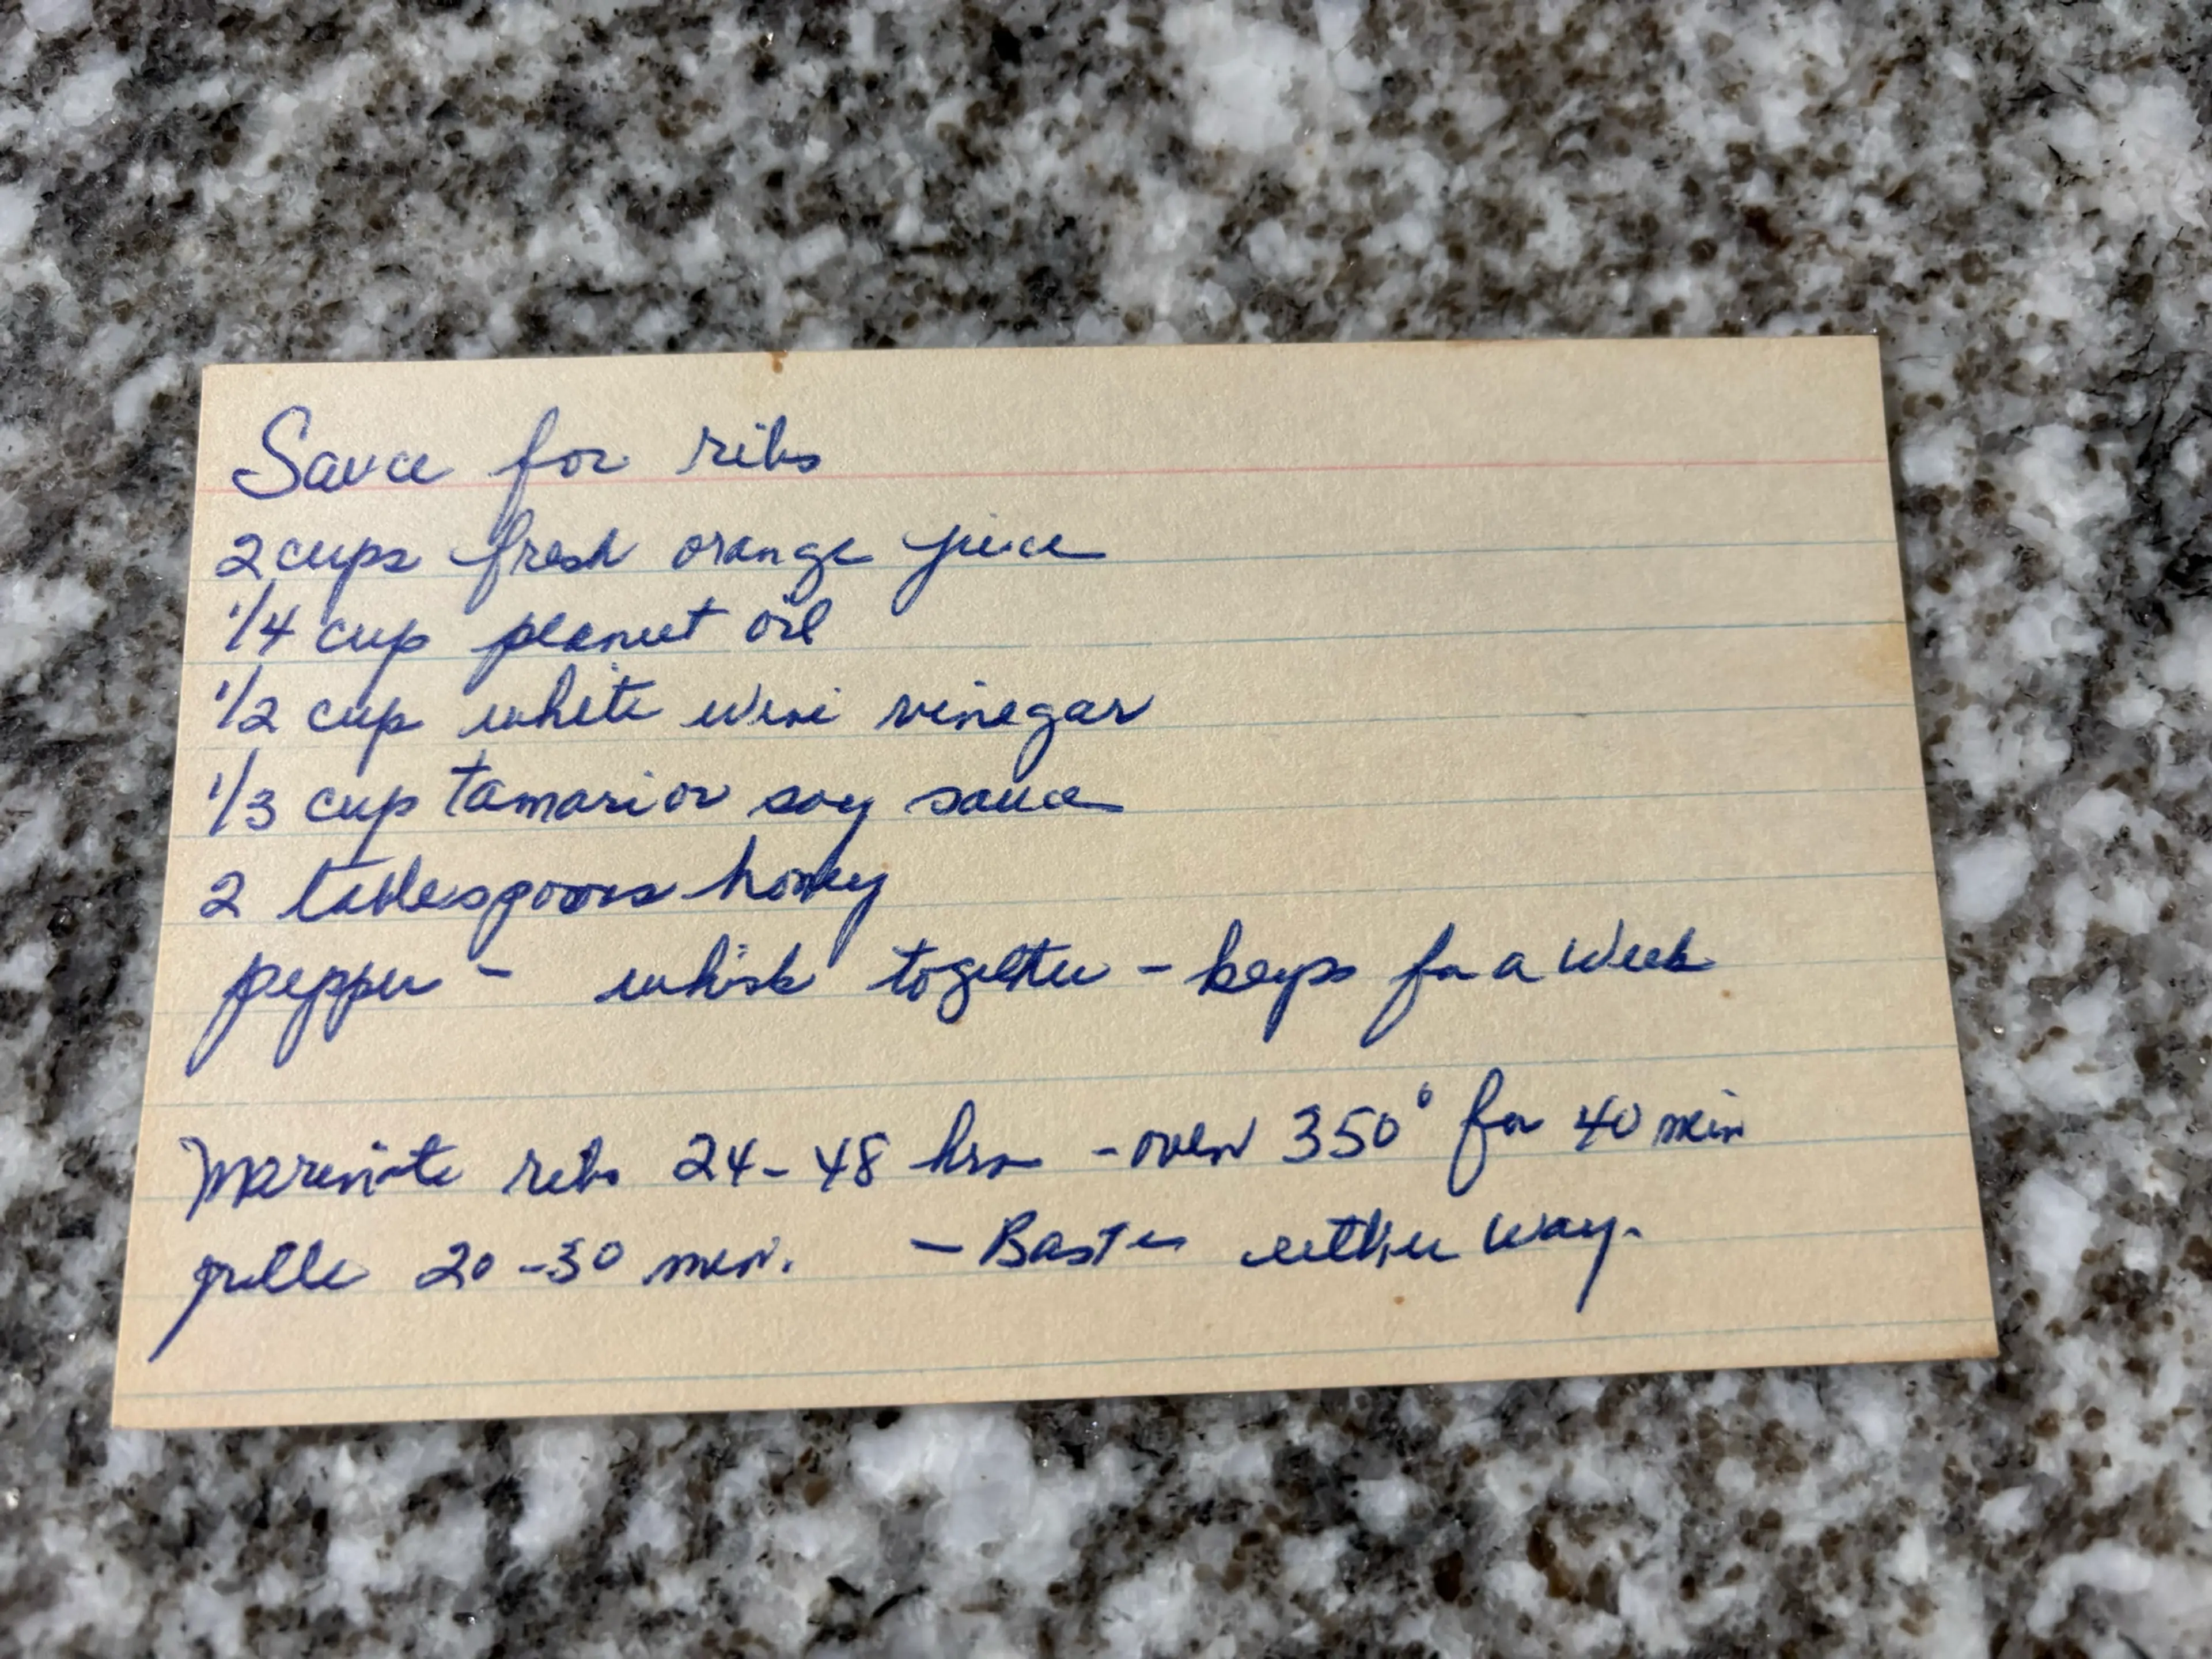 Sauce for ribs
2 cups fresh orange juice
1/4 cup peanut oil
1/2 cup white wine vinegar
1/3 cup tamari or soy sauce
2 tablespoons honey
pepper - whisk together - keeps for a week
Marinate ribs 24-48 hrs - oven 350° for 40 min
grille 20-30 min. - Baste either way.